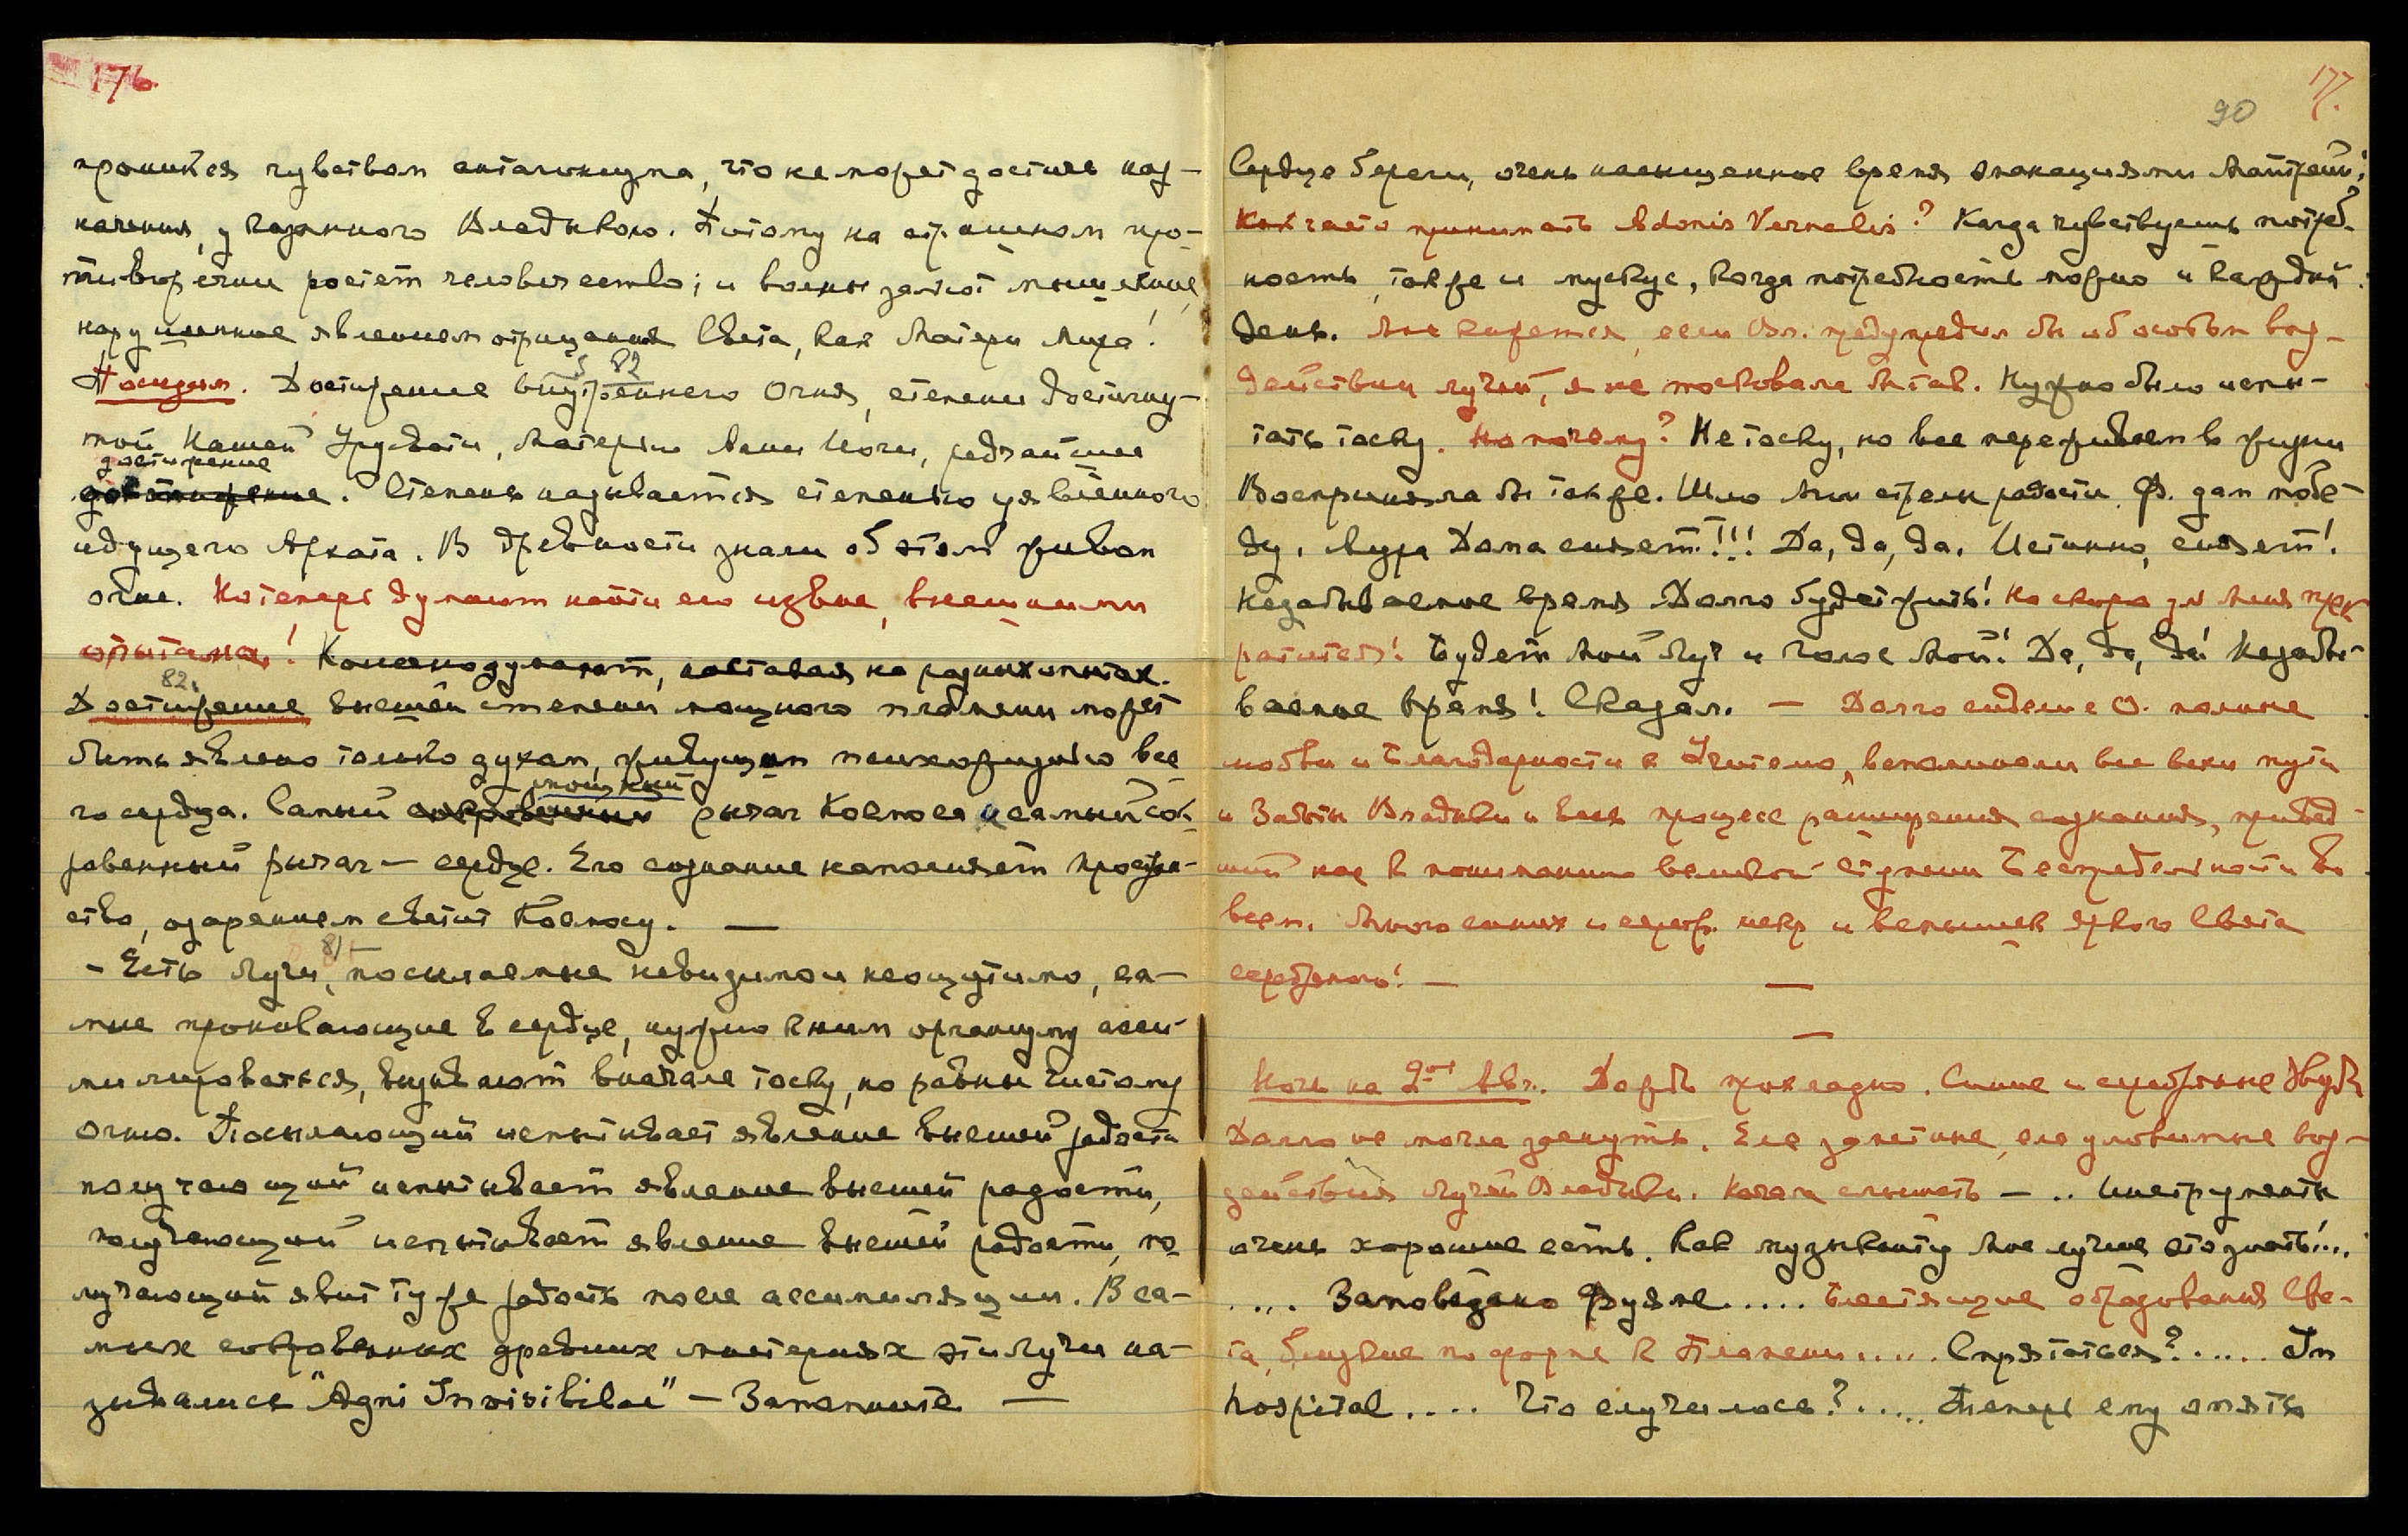 176.
проникся чувством антагонизма, что не может достичь наз-
начения, указанного Владыкою. Потому на страшном про-
тиворечии растет человечество; и волны заятот мышление,
нарушенное явлением отрицания Света, как Матери Мира!
82
Пошлем. Достижение внутреннего Огня, степени достигну-
той Нашей Урусвати, Матерью Агни Йоги, редчайшее
достижение
достижение. Степень называется степенью уявленного
идущего Архата. В древности знали об этом живом
огне. Но теперь думают найти его извне, внешними
опытами! Конечно думают, настаивая на разных опытах.
82.
Достижение высшей степени мощного пламени может
быть явлено только духам, живущим психожизнью все-
мощный
го сердца. Самый сокровенный рычаг Космоса и самый сок-
ровенный рычаг — сердце. Его сознание наполняет простран-
ство, озарением светит Космосу. —
81
- Есть Лучи, посылаемые невидимо и неощутимо, са-
мые проникающие в сердце, нужно к ним организму асси-
милироваться, вызывают вначале тоску, но равны чистому
огню. Посылающий испытывает явление высшей радости
получающий испытывает явление высшей радости,
получающий испытывает явление высшей радости, по-
лучающий явит ту же радость после ассимиляции. В са-
мых сокровенных древних мистериях эти Лучи на-
зывались "Agni Invisibilae" — Запомните —
177.
90
Сердце береги, очень насыщенное время эманациями Материи!
Как часто принимать Adonis Vernalis? Когда чувствуешь потреб-
ность, также и мускус, когда потребность можно и каждый
день. Мне кажется, если Вл. предупредил бы об особом воз-
действии лучей, я не тосковала бы так. Нужно было испы-
тать тоску. Но почему? Не тоску, но все переживаем в жизни
Восприняла бы также. Шлю Мои стрелы радости. Ф. дам побе-
ду. Аура Дома сияет!!! Да, да, да. Истинно, сияет!
Незабываемое время. Долго будет жить! Но скоро эл Меня прек-
ратится! Будет Мой Луч и голос Мой! Да, да, да! Незабы-
ваемое время! Сказал. — Долго сидели с О. полные
любви и благодарности к Учителю, вспоминали все вехи пути
и Заботы Владыки и весь процесс расширения сознания, привед-
ший нас к пониманию великой Беспредельности во
всем. Много синих и сереб. искр и вспышек яркого Света
серебряного! — —
—
Ночь на 2ое Авг. Дождь прохладно. Синие и серебряные звезды
Долго не могла заснуть. Еле заметные, еле уловимые воз-
действия Лучей Владыки. Начала слышать — .. Инструменты
очень хорошие есть. Как музыканту Мне лучше это знать!...
.... Заповедано Фуяме..... Блестящие образования Све-
та, близкие по форме к Пламени..... Спрятаться?..... In
hospital.... Что случилось?..... Теперь ему опять